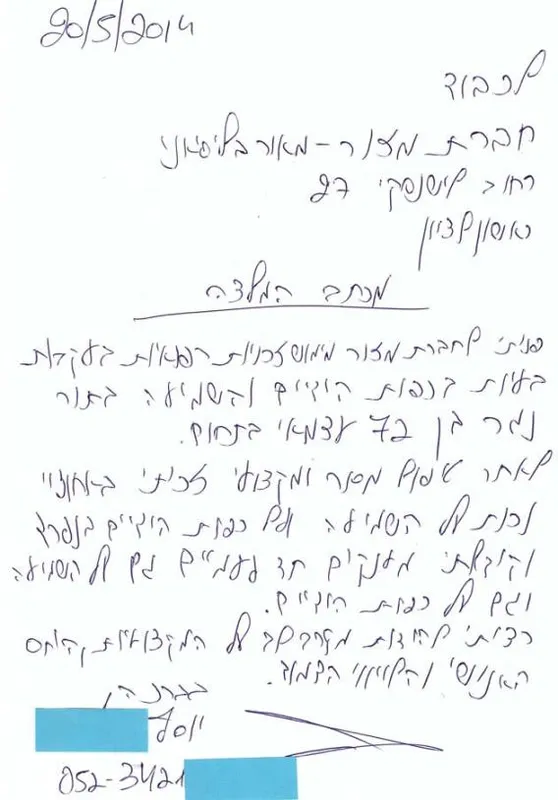 20/5/2014
לכבוד
חברת מצנח - מאור בליסיאני
רחוב לישנסקי 27
ראשון לציון
מכתב המלצה
פניתי לחברת מימוש זכויות רפואיות בעקבות
בעיות בכפות הידיים והשמיעה בתור
נגר בן 72 עצמאי בתחום.
לאחר טיפול מסור ומקצועי זכיתי באחוזי
נכות על השמיעה ועל כפות הידיים בנפרד
וקיבלתי מענקים חד פעמיים גם על השמיעה
וגם על כפות הידיים.
רציתי להודות מקרב לב על המקצועיות, היחס
האנושי והליווי הצמוד.
בברכה
יוסף
052-3421